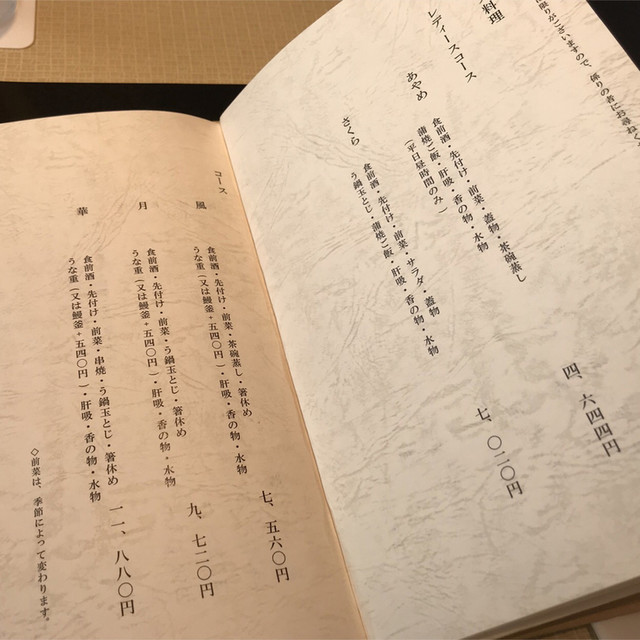 限りがございますので、係りの者にお尋ねく
料理
レディースコース
あやめ
食前酒・先付け・前菜・蓋物・茶碗蒸し
蒲焼ご飯・肝吸・香の物・水物
(平日昼時間のみ)
四、六四四円
さくら
食前酒・先付け・前菜・サラダ・蓋物
う鍋玉とじ・蒲焼ご飯、肝吸・香の物・水物
七、〇二〇円
コース
風
食前酒・先付け・前菜・茶碗蒸し・箸休め
うな重(又は鰻釜+五四〇円)・肝吸・香の物・水物
七、五六〇円
月
食前酒・先付け・前菜・う鍋玉とじ・箸休め
うな重(又は鰻釜+五四〇円)・肝吸・香の物・水物
九、七二〇円
華
食前酒・先付け・前菜・串焼・う鍋玉とじ・箸休め
うな重(又は鰻釜+五四〇円)・肝吸・香の物・水物
一一、八八〇円
◇前菜は、季節によって変わります。